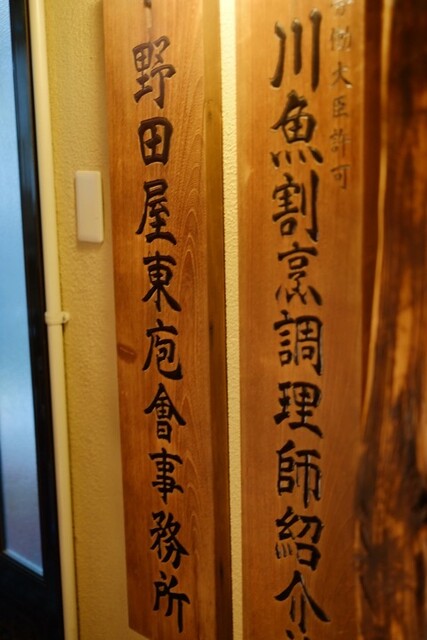 大臣許可
川魚割烹調理師紹介
野田屋東庖會事務所